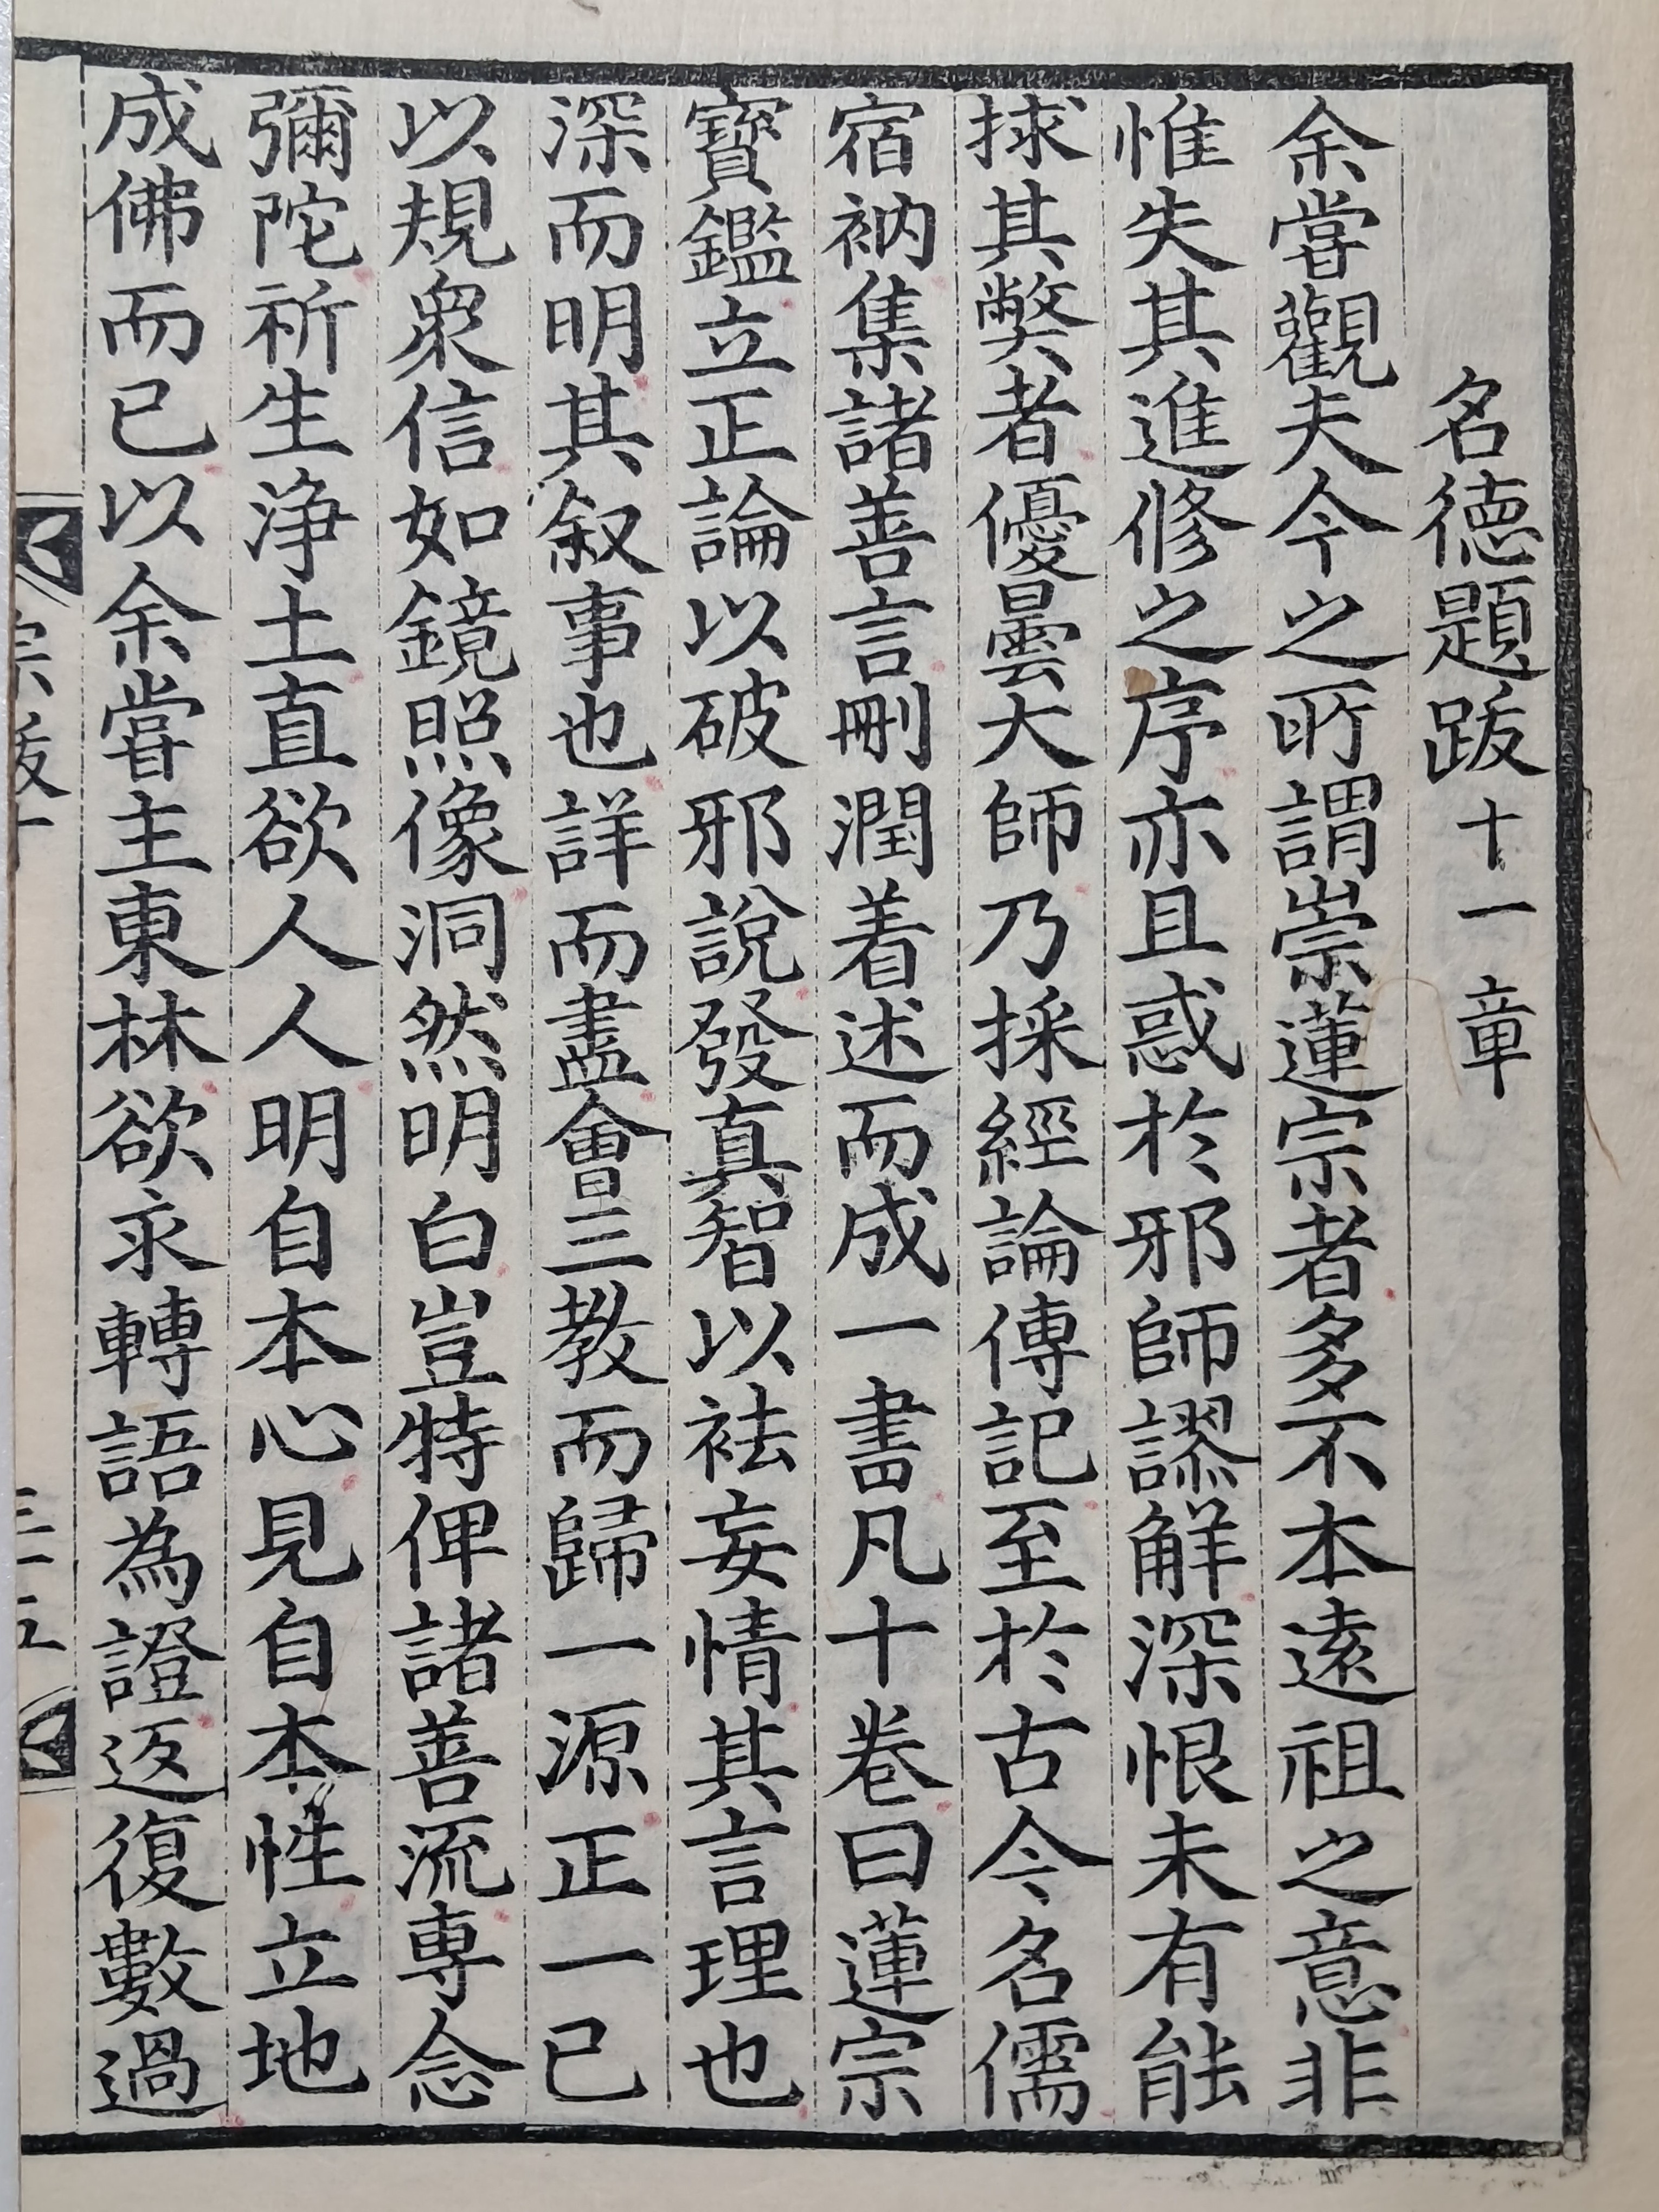 名德題跋十一章
余甞觀夫今之所謂崇蓮宗者多不本遠祖之意非
惟失其進修之序亦且惑於邪師謬解深恨未有能
捄其弊者優曇大師乃採經論傳記至於古今名儒
宿衲集諸善言刪潤着述而成一書凡十卷曰蓮宗
寶鑑立正論以破邪說發真智以袪妄情其言理也
深而明其叙事也詳而盡會三教而歸一源正一己
以規衆信如鏡照像洞然明白豈特俾諸善流專念
彌陀祈生淨土直欲人人明自本心見自本性立地
成佛而已以余甞主東林欲求轉語為證返復數過